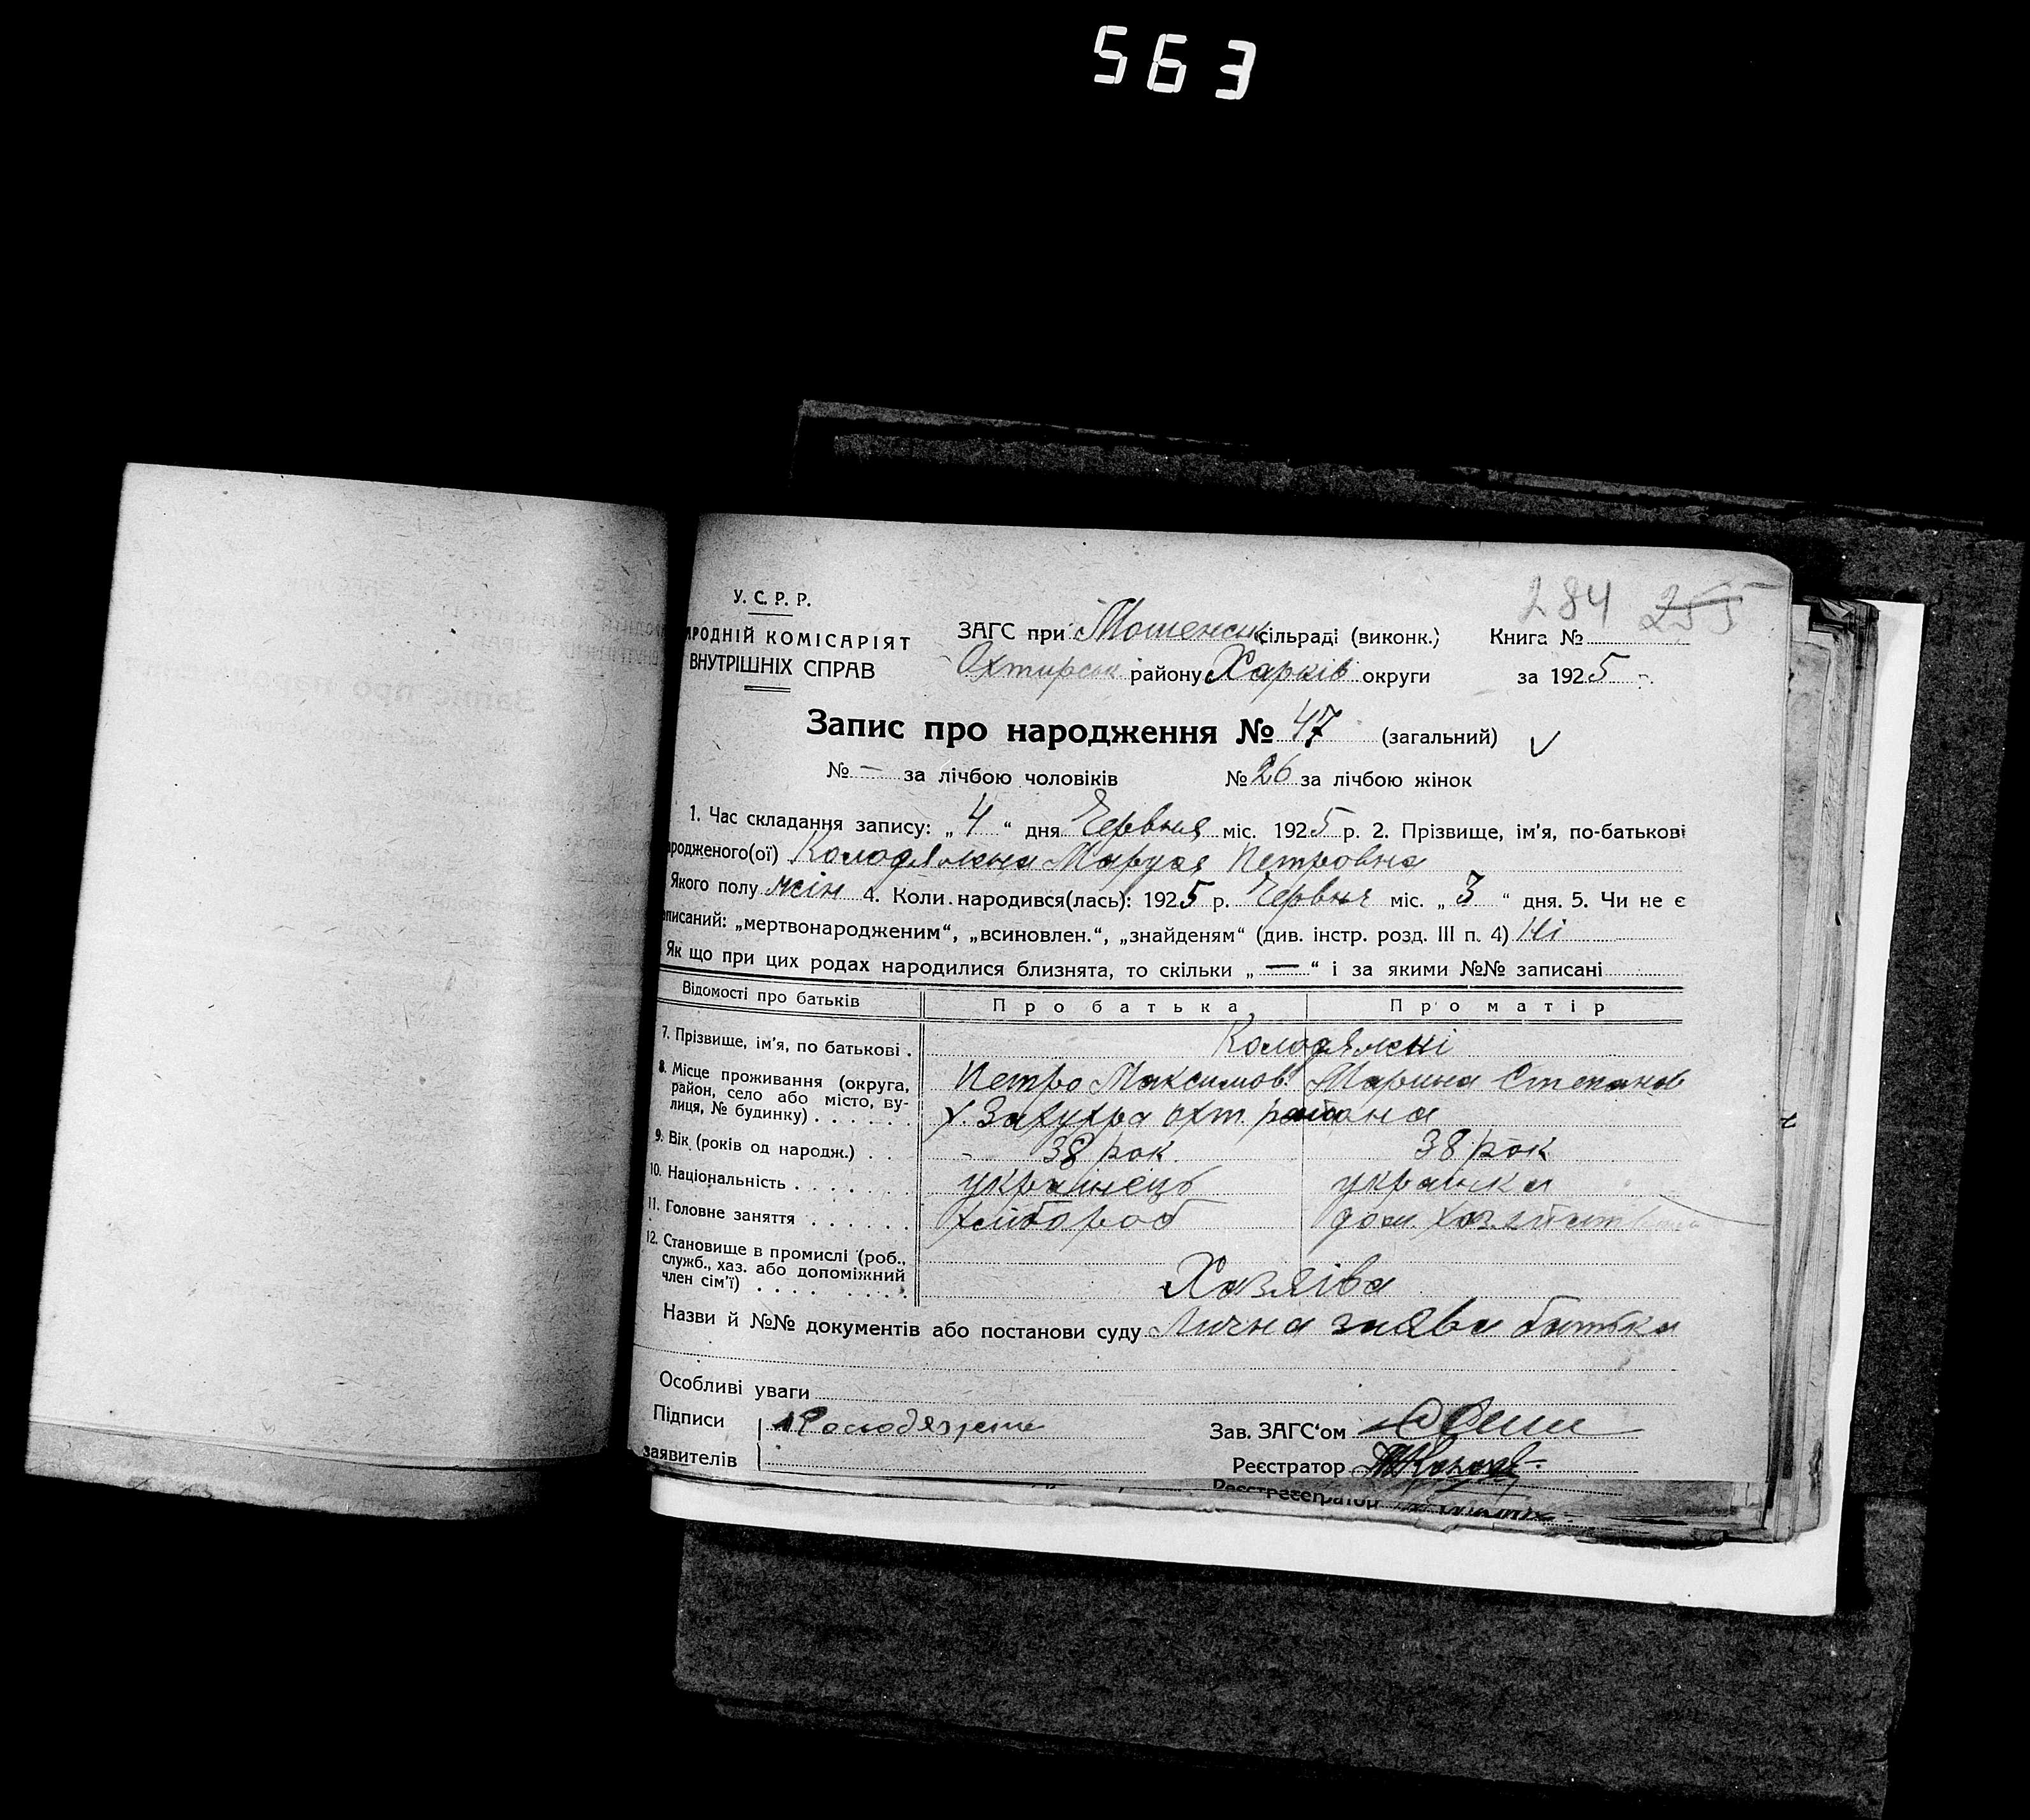 563
284 255
У. С. Р. Р.
РОДНІЙ КОМІСАРІЯТ
ВНУТРІШНІХ СПРАВ
ЗАГС при Мошенськ сільраді (виконк.) Книга №
Охтирськ району Харків округи за 1925
Запис про народження № 47 (загальний) ✓
№ — за лічбою чоловіків № 26 за лічбою жінок
1. Час складання запису: „4“ дня Червня міс. 1925 р. 2. Прізвище, ім’я, по-батькові
родженого(ої) Колодяжна Маруся Петровна
Якого полу жін 4. Коли народився(лась): 1925 р. Червня міс. „3“ дня. 5. Чи не є
писаний: „мертвонародженим“, „всиновлен.“, „знайденям“ (див. інстр. розд. III п. 4) Ні
Як що при цих родах народилися близнята, то скільки „—“ і за якими №№ записані
Відомості про батьків Про батька Про матір
7. Прізвище, ім’я, по батькові . Колодяжні
Петро Максимов Марина Степанов
8. Місце проживання (округа, район, село або місто, вулиця, № будинку) . . . . . . х. Закукра охт. района
9. Вік (років од народж.) . . 38 рок. 38 рок
10. Національність . . . . . . українець украинка
11. Головне заняття . . . . . . хлібороб дом. хозяйство
12. Становище в промислі (роб., служб., хаз. або допоміжний член сім’ї) . . . . . . . . Хазяіва
Назви й №№ документів або постанови суду Лична заява батька
Особливі уваги
Підписи Колодяжне Зав. ЗАГС‘ом
заявителів Реєстратор